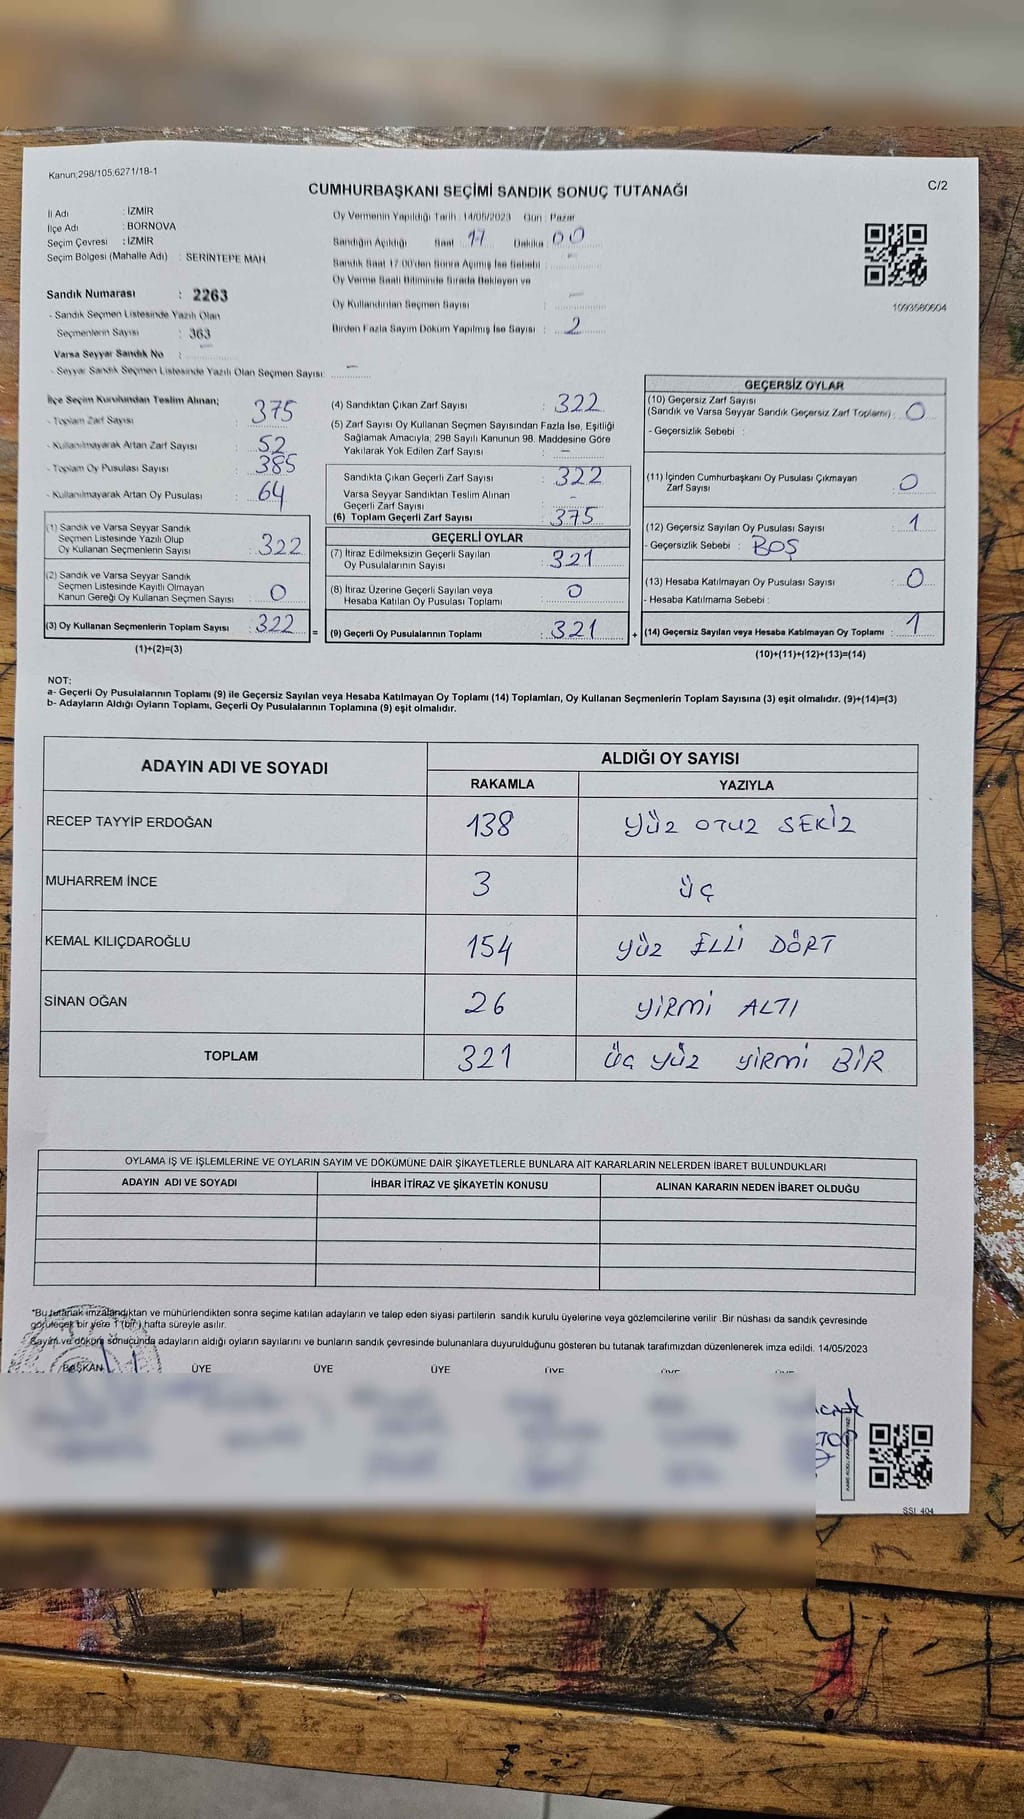 Kanun;298/105,6271/18-1
CUMHURBAŞKANI SEÇİMİ SANDIK SONUÇ TUTANAĞI
C/2
İl Adı : İZMİR
İlçe Adı : BORNOVA
Seçim Çevresi : İZMİR
Seçim Bölgesi (Mahalle Adı) : SERİNTEPE MAH
Sandık Numarası : 2263
- Sandık Seçmen Listesinde Yazılı Olan
Seçmenlerin Sayısı : 363
Varsa Seyyar Sandık No : -
- Seyyar Sandık Seçmen Listesinde Yazılı Olan Seçmen Sayısı: -
Oy Vermenin Yapıldığı Tarih : 14/05/2023 Gün : Pazar
Sandığın Açıldığı Saat : 17 Dakika : 00
Sandık Saat 17:00'den Sonra Açılmış İse Sebebi : -
Oy Verme Saati Bitiminde Sırada Bekleyen ve
Oy Kullandırılan Seçmen Sayısı : -
Birden Fazla Sayım Döküm Yapılmış İse Sayısı : 2
1093580604
İlçe Seçim Kurulundan Teslim Alınan;
- Toplam Zarf Sayısı : 375
- Kullanılmayarak Artan Zarf Sayısı : 52
- Toplam Oy Pusulası Sayısı : 385
- Kullanılmayarak Artan Oy Pusulası : 64
(1) Sandık ve Varsa Seyyar Sandık
Seçmen Listesinde Yazılı Olup
Oy Kullanan Seçmenlerin Sayısı : 322
(2) Sandık ve Varsa Seyyar Sandık
Seçmen Listesinde Kayıtlı Olmayan
Kanun Gereği Oy Kullanan Seçmen Sayısı : 0
(3) Oy Kullanan Seçmenlerin Toplam Sayısı : 322
(1)+(2)=(3)
(4) Sandıktan Çıkan Zarf Sayısı : 322
(5) Zarf Sayısı Oy Kullanan Seçmen Sayısından Fazla İse, Eşitliği
Sağlamak Amacıyla; 298 Sayılı Kanunun 98. Maddesine Göre
Yakılarak Yok Edilen Zarf Sayısı : -
Sandıkta Çıkan Geçerli Zarf Sayısı : 322
Varsa Seyyar Sandıktan Teslim Alınan
Geçerli Zarf Sayısı : -
(6) Toplam Geçerli Zarf Sayısı : 375
GEÇERLİ OYLAR
(7) İtiraz Edilmeksizin Geçerli Sayılan
Oy Pusulalarının Sayısı : 321
(8) İtiraz Üzerine Geçerli Sayılan veya
Hesaba Katılan Oy Pusulası Toplamı : 0
= (9) Geçerli Oy Pusulalarının Toplamı : 321 +
GEÇERSİZ OYLAR
(10) Geçersiz Zarf Sayısı
(Sandık ve Varsa Seyyar Sandık Geçersiz Zarf Toplamı) : 0
- Geçersizlik Sebebi :
(11) İçinden Cumhurbaşkanı Oy Pusulası Çıkmayan
Zarf Sayısı : 0
(12) Geçersiz Sayılan Oy Pusulası Sayısı : 1
- Geçersizlik Sebebi : BOŞ
(13) Hesaba Katılmayan Oy Pusulası Sayısı : 0
- Hesaba Katılmama Sebebi :
(14) Geçersiz Sayılan veya Hesaba Katılmayan Oy Toplamı : 1
(10)+(11)+(12)+(13)=(14)
NOT:
a- Geçerli Oy Pusulalarının Toplamı (9) ile Geçersiz Sayılan veya Hesaba Katılmayan Oy Toplamı (14) Toplamları, Oy Kullanan Seçmenlerin Toplam Sayısına (3) eşit olmalıdır. (9)+(14)=(3)
b- Adayların Aldığı Oyların Toplamı, Geçerli Oy Pusulalarının Toplamına (9) eşit olmalıdır.
ADAYIN ADI VE SOYADI ALDIĞI OY SAYISI
RAKAMLA YAZIYLA
RECEP TAYYİP ERDOĞAN 138 YÜZ OTUZ SEKİZ
MUHARREM İNCE 3 ÜÇ
KEMAL KILIÇDAROĞLU 154 YÜZ ELLİ DÖRT
SİNAN OĞAN 26 YİRMİ ALTI
TOPLAM 321 ÜÇ YÜZ YİRMİ BİR
OYLAMA İŞ VE İŞLEMLERİNE VE OYLARIN SAYIM VE DÖKÜMÜNE DAİR ŞİKAYETLERLE BUNLARA AİT KARARLARIN NELERDEN İBARET BULUNDUKLARI
ADAYIN ADI VE SOYADI İHBAR İTİRAZ VE ŞİKAYETİN KONUSU ALINAN KARARIN NEDEN İBARET OLDUĞU
*Bu tutanak imzalandıktan ve mühürlendikten sonra seçime katılan adayların ve talep eden siyasi partilerin sandık kurulu üyelerine veya gözlemcilerine verilir .Bir nüshası da sandık çevresinde
görülecek bir yere 1 (bir) hafta süreyle asılır.
Sayım ve döküm sonucunda adayların aldığı oyların sayılarını ve bunların sandık çevresinde bulunanlara duyurulduğunu gösteren bu tutanak tarafımızdan düzenlenerek imza edildi. 14/05/2023
BAŞKAN ÜYE ÜYE ÜYE ÜYE ÜYE
SSI_404